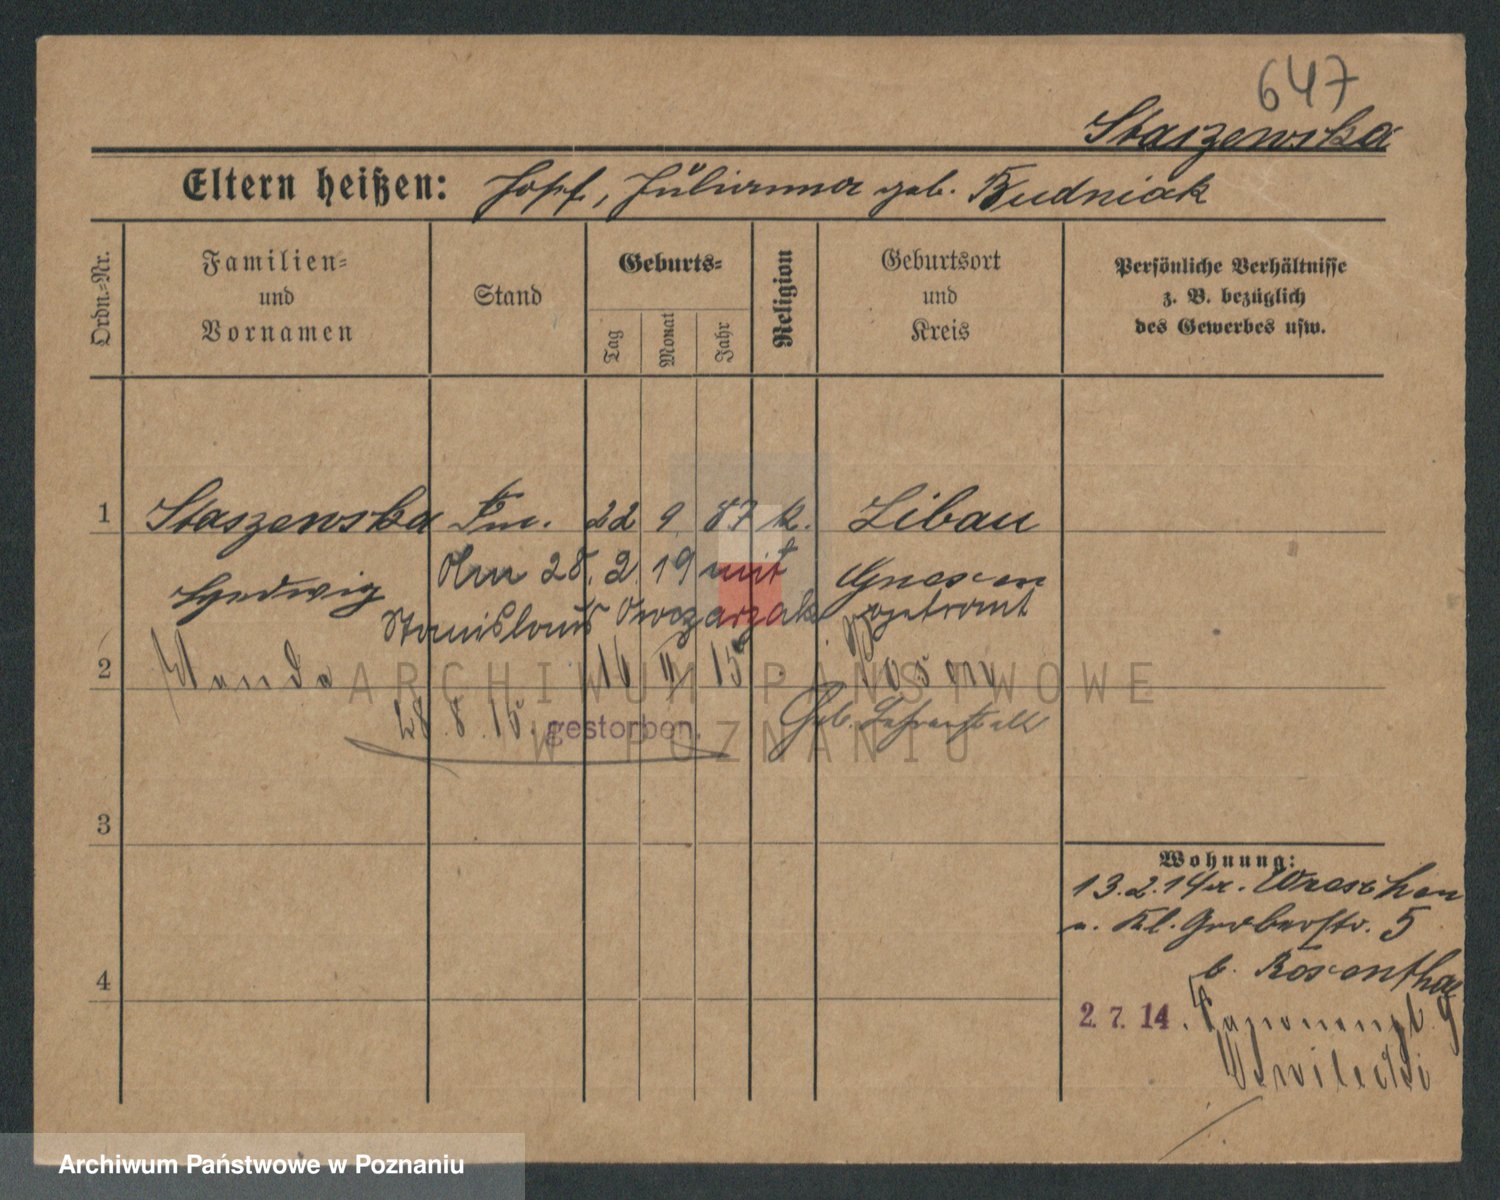 647
Staszewska
Eltern heißen: Josef, Julianna geb. Budniak
Ordn.-Nr.
Familien-
und
Vornamen
Stand
Geburts-
Tag
Monat
Jahr
Religion
Geburtsort
und
Kreis
Persönliche Verhältnisse
z. B. bezüglich
des Gewerbes usw.
1 Staszewska 22 9 87 k. Libau
Am 28. 2. 19 mit Gnesen
Hedwig
Stanislaus getraut
2 Wanda 16 15 Posen
28. 8. 15. gestorben.
Geb.
3
4
Wohnung:
13.2.14 Wreschen
Kl. Gerberstr. 5
b. Rosenthal
2. 7. 14.
ARCHIWUM PAŃSTWOWE
W POZNANIU
Archiwum Państwowe w Poznaniu